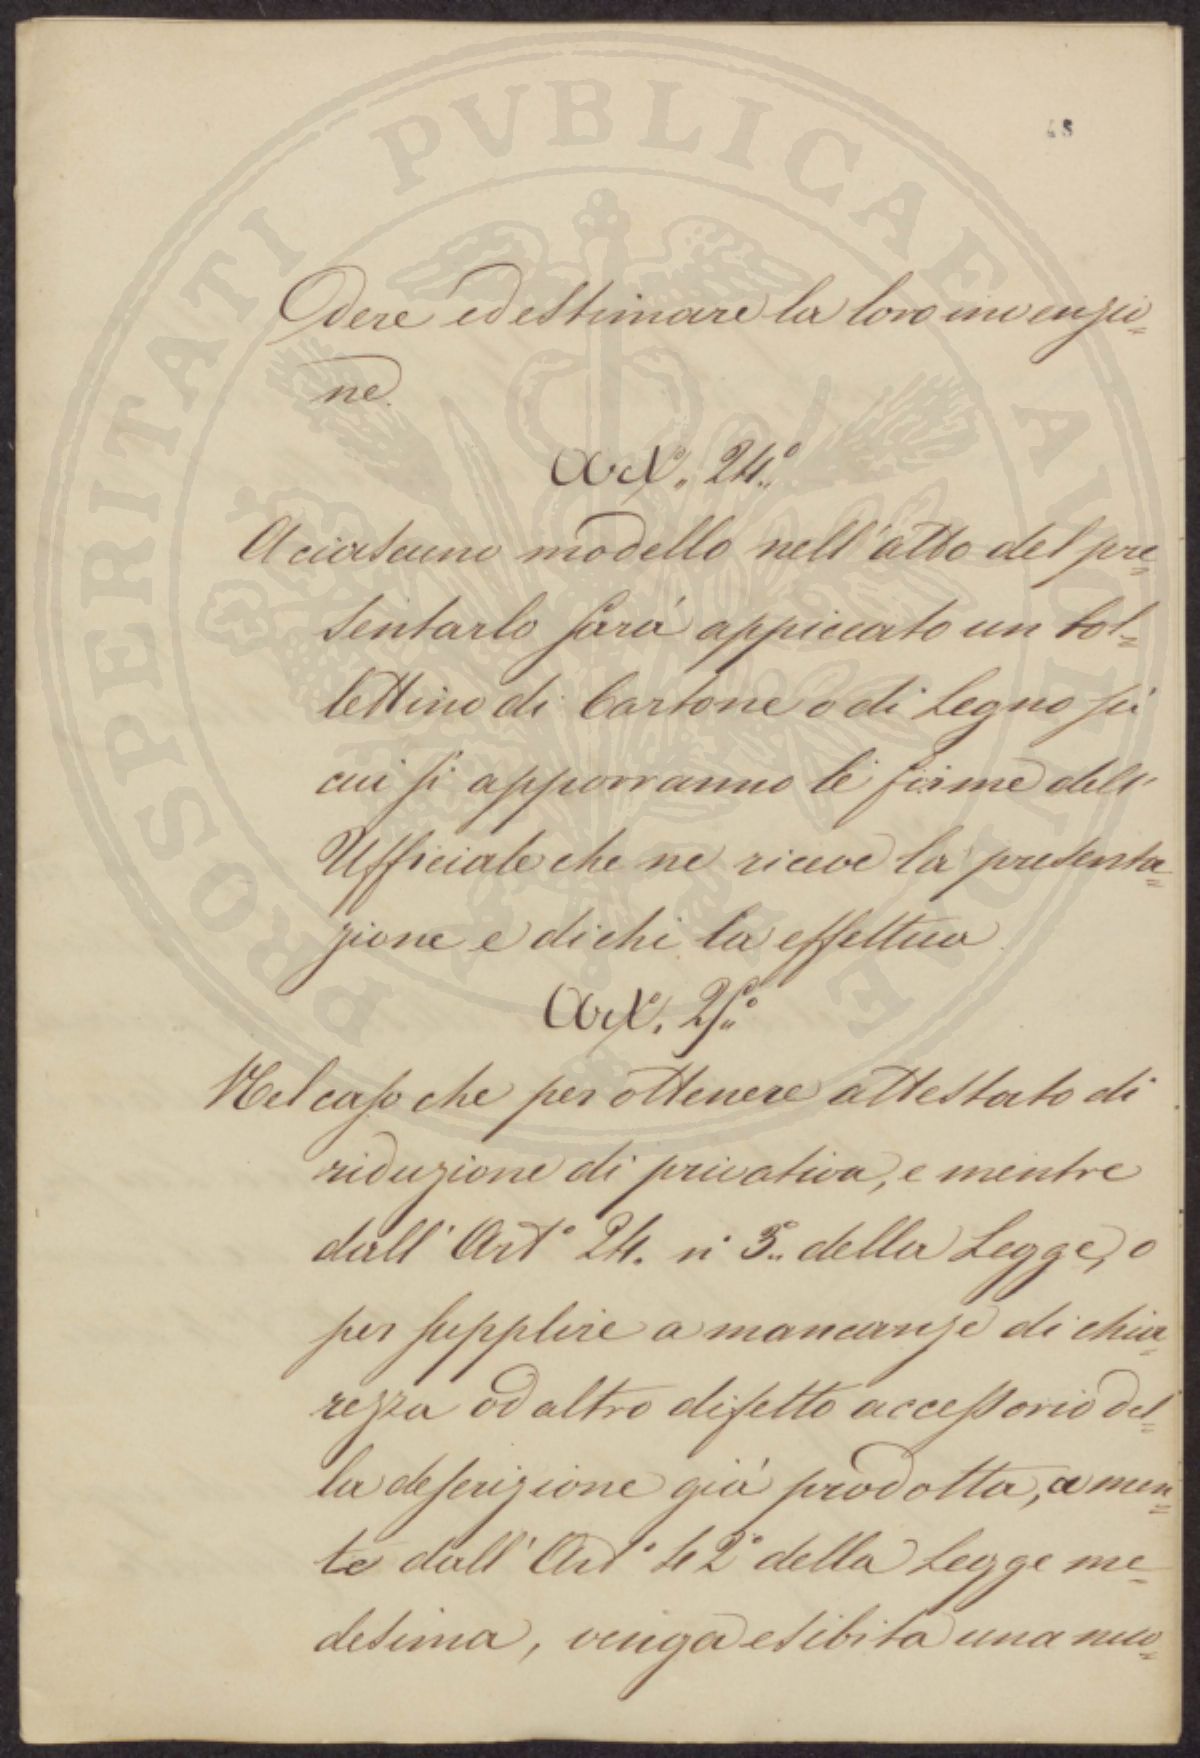 48
PROSPERITATI PVBLICAE AVGENDAE
dere ed estimare la loro invenzio=
ne.
Art.° 24.°
A ciascuno modello nell'atto del pre=
sentarlo sarà appiccato un bol=
lettino di Cartone o di Legno su
cui si apporranno le firme dell'
Ufficiale che ne riceve la presenta=
zione e di chi la effettua
Art.° 25.°
Nel caso che per ottenere attestato di
riduzione di privativa, e mentre
dall'Art.° 24. n° 3.. della Legge, o
per supplire a mancanze di chia=
rezza od altro difetto accessorio del=
la descrizione già prodotta, a men=
te dall'Art.° 42° della Legge me=
desima, venga esibita una nuo=